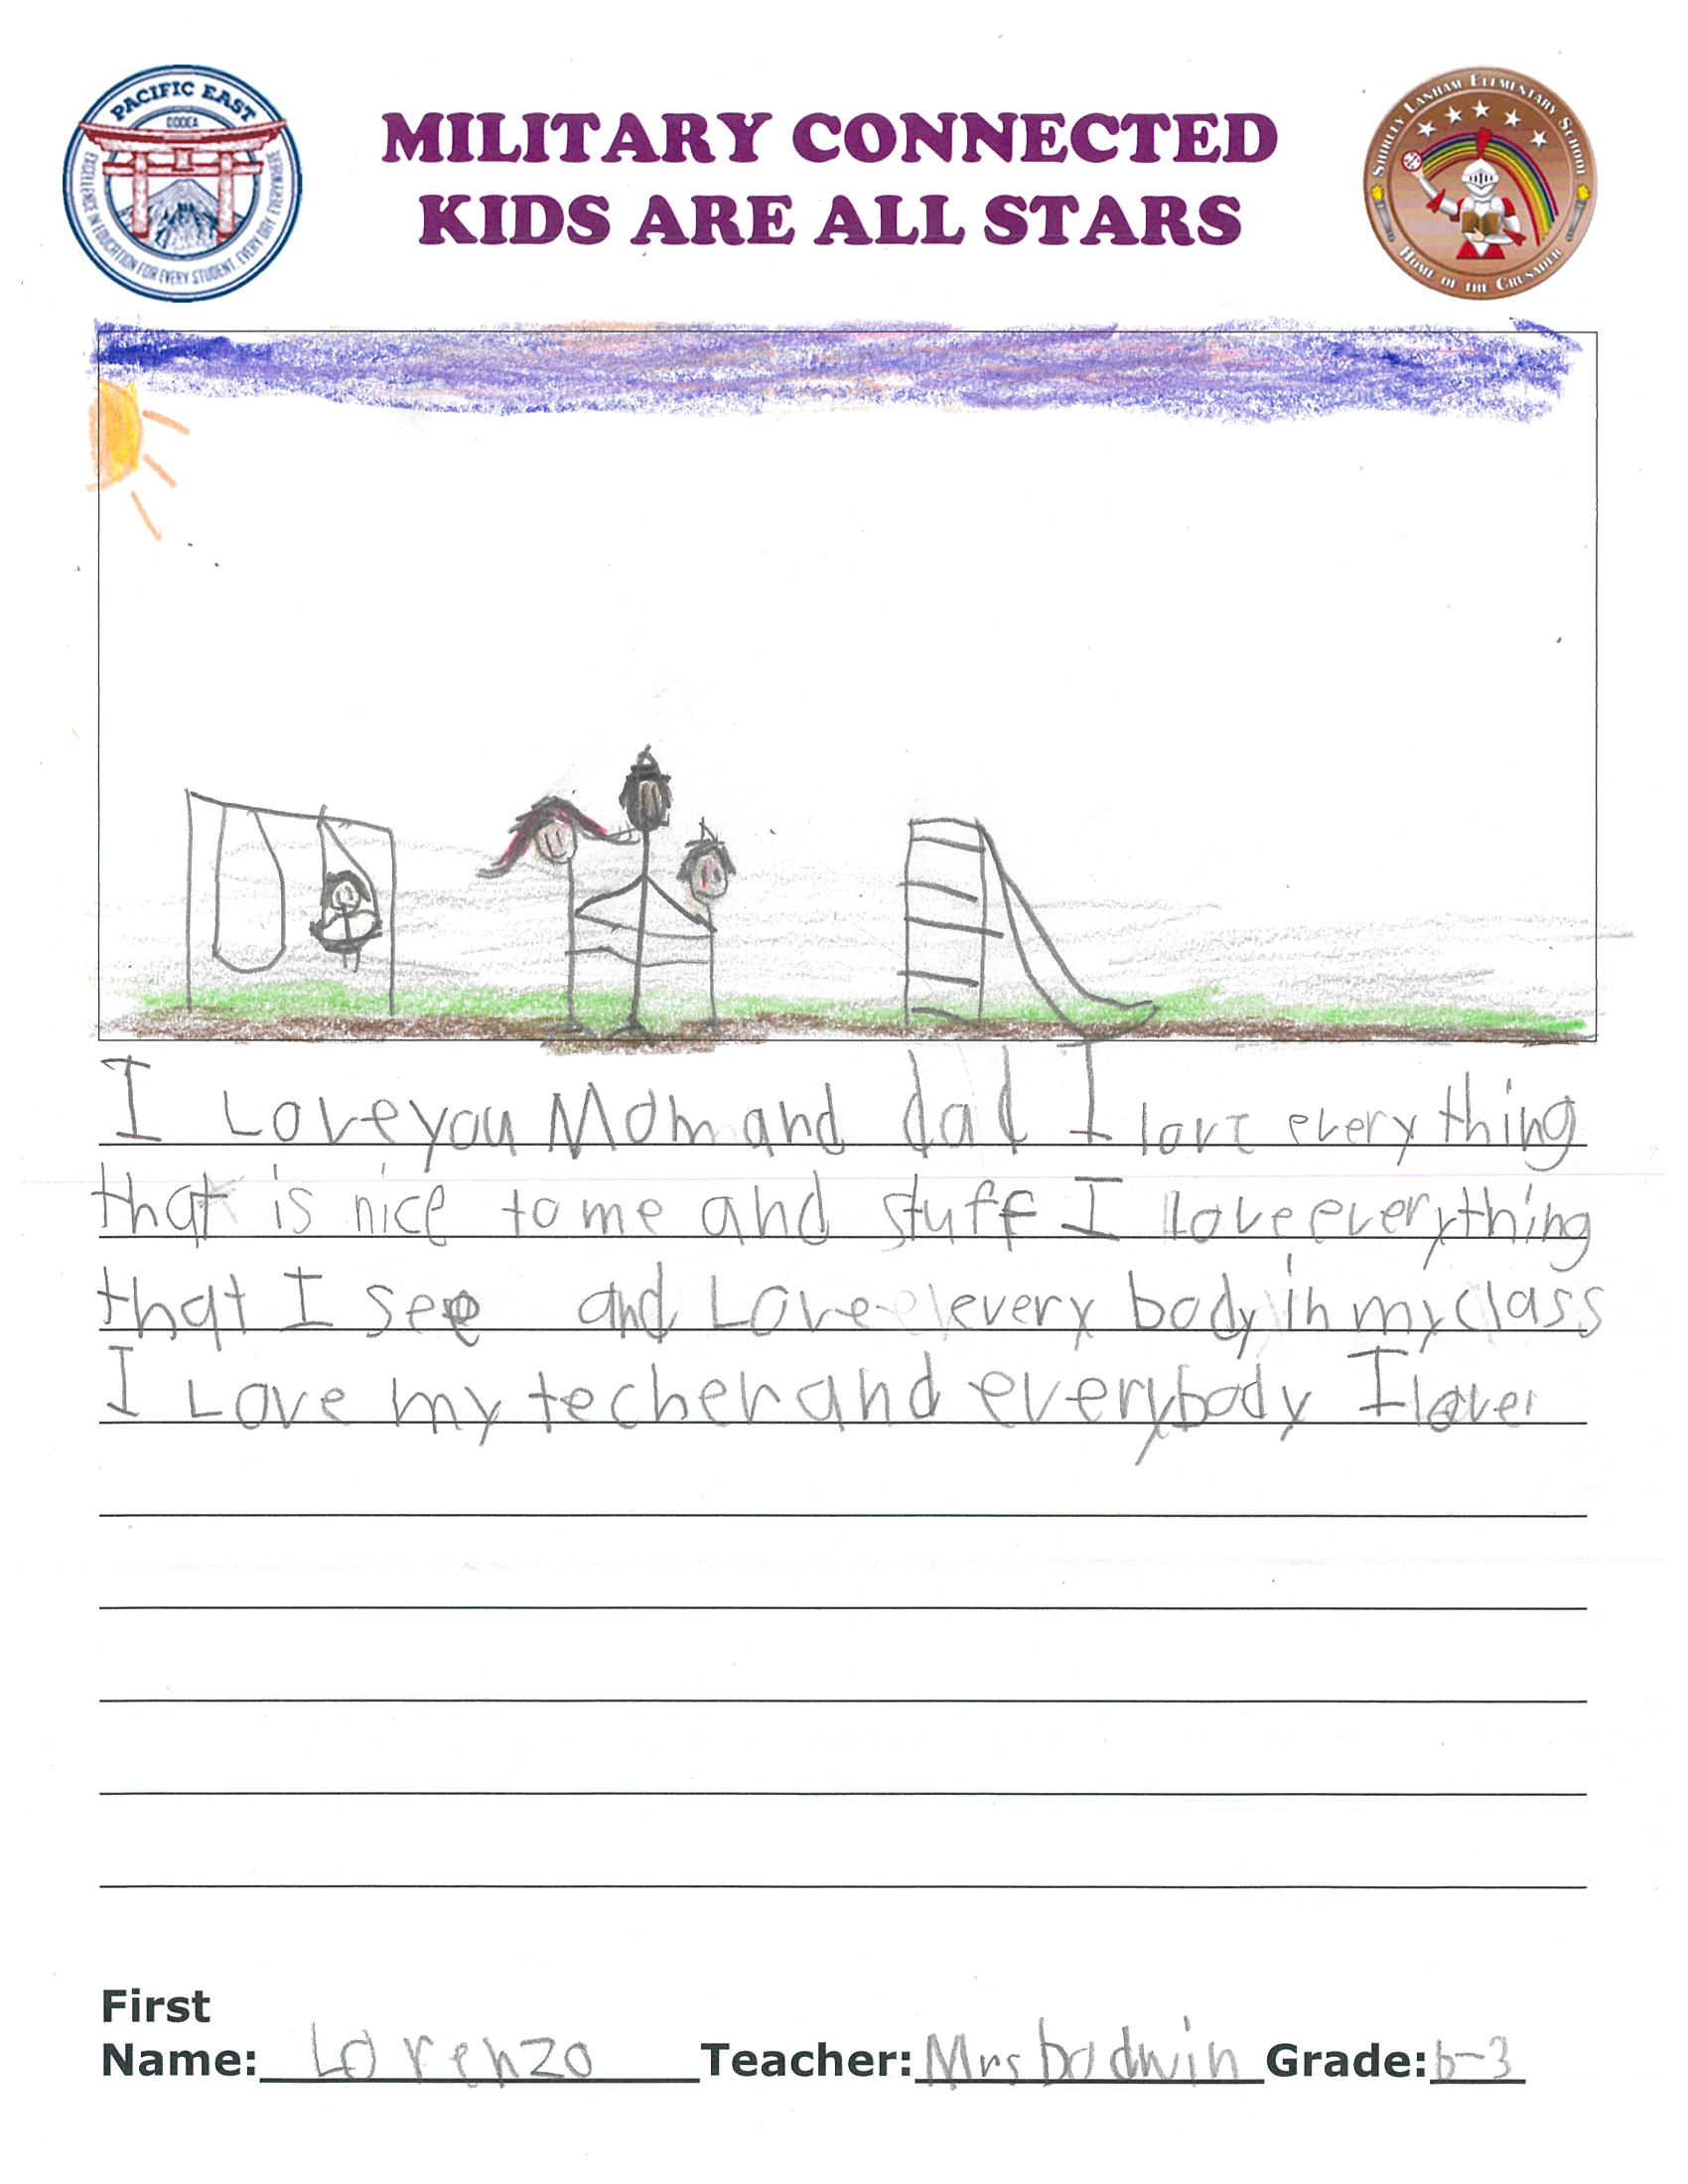 PACIFIC EAST
DODEA
EXCELLENCE IN EDUCATION FOR EVERY STUDENT, EVERY DAY, EVERYWHERE
MILITARY CONNECTED
KIDS ARE ALL STARS
SHIRLEY LANHAM ELEMENTARY SCHOOL
HOME OF THE CRUSADER
I Love you Mom and dad I love every thing
that is nice to me and stuff I love everything
that I see and Love every body in my class
I Love my techer and everybody I love
First
Name: Lorenzo Teacher: Mrs bodwin Grade: -3